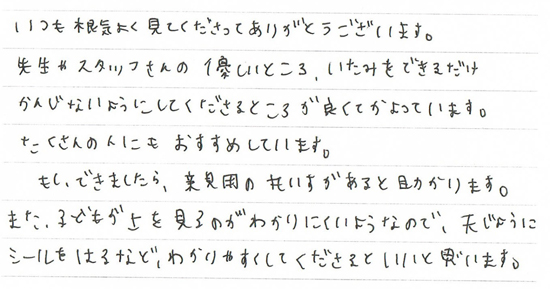 いつも根気よく見てくださってありがとうございます。
先生やスタッフさんの優しいところ、いたみをできるだけ
かんじないようにしてくださるところが良くてかよっています。
たくさんの人にもおすすめしています。
もし、できましたら、乗見用の丸いすがあると助かります。
また、子どもが上を見るのがわかりにくいようなので、天じょうに
シールをはるなど、わかりやすくしてくださるといいと思います。